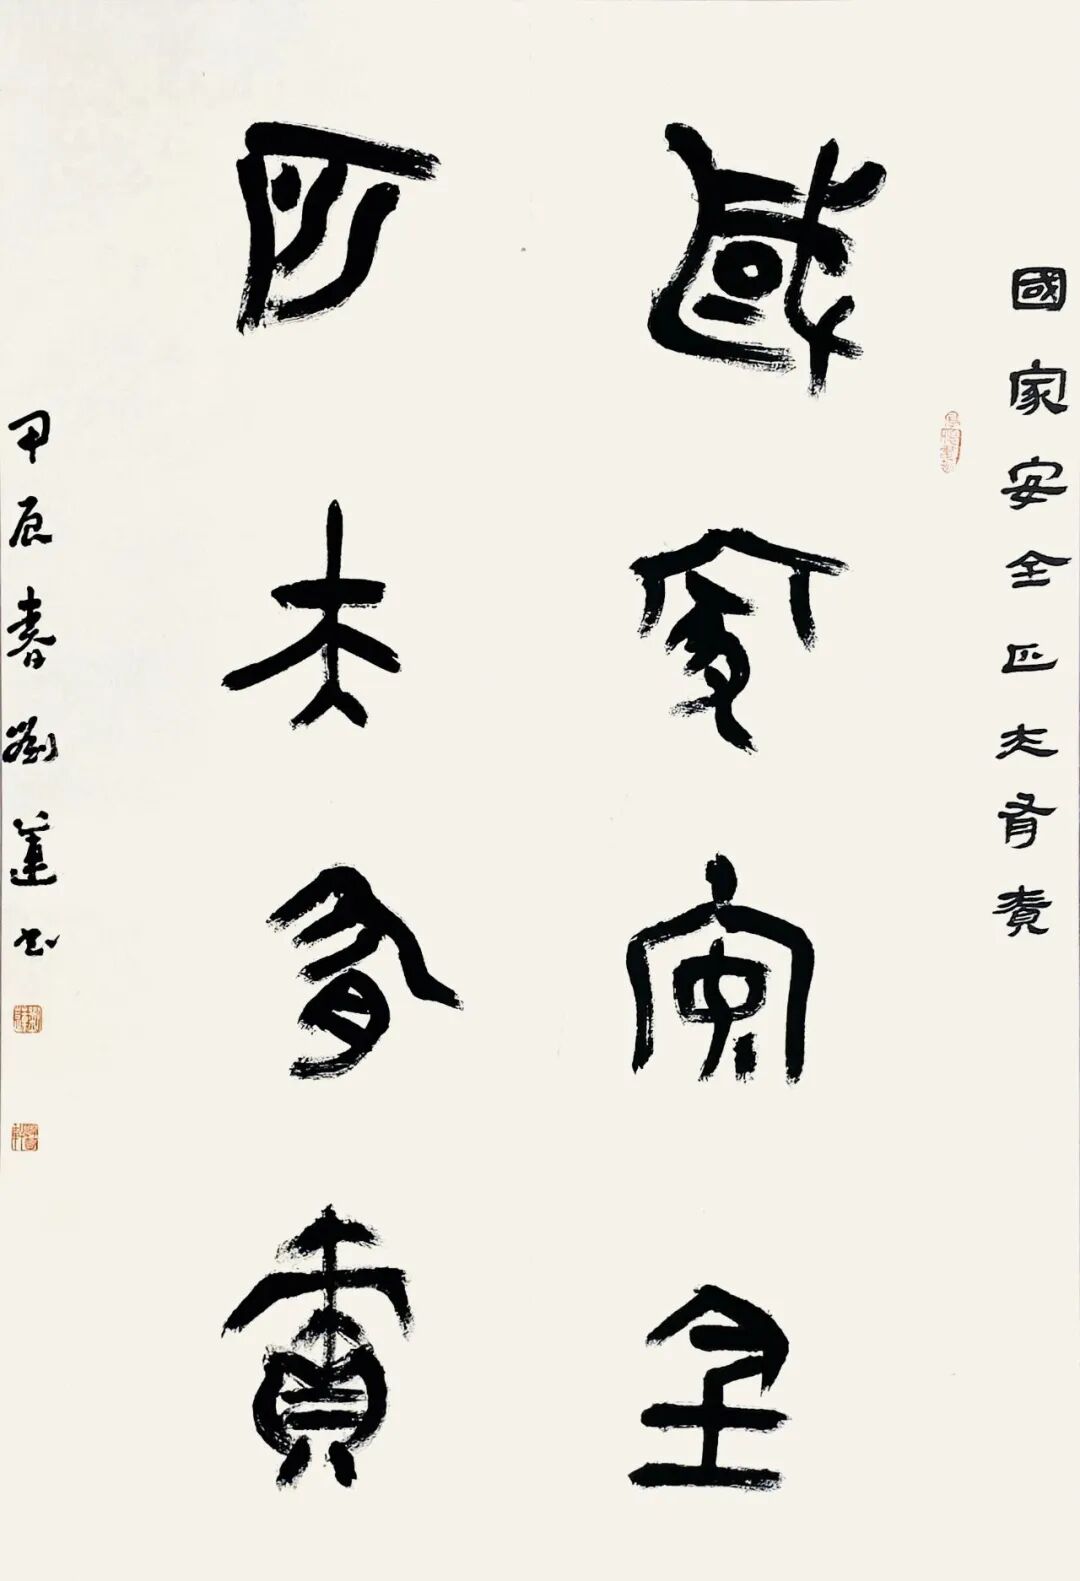 國家安全匹夫有責
國家安全
匹夫有責
甲辰春劉蓮书